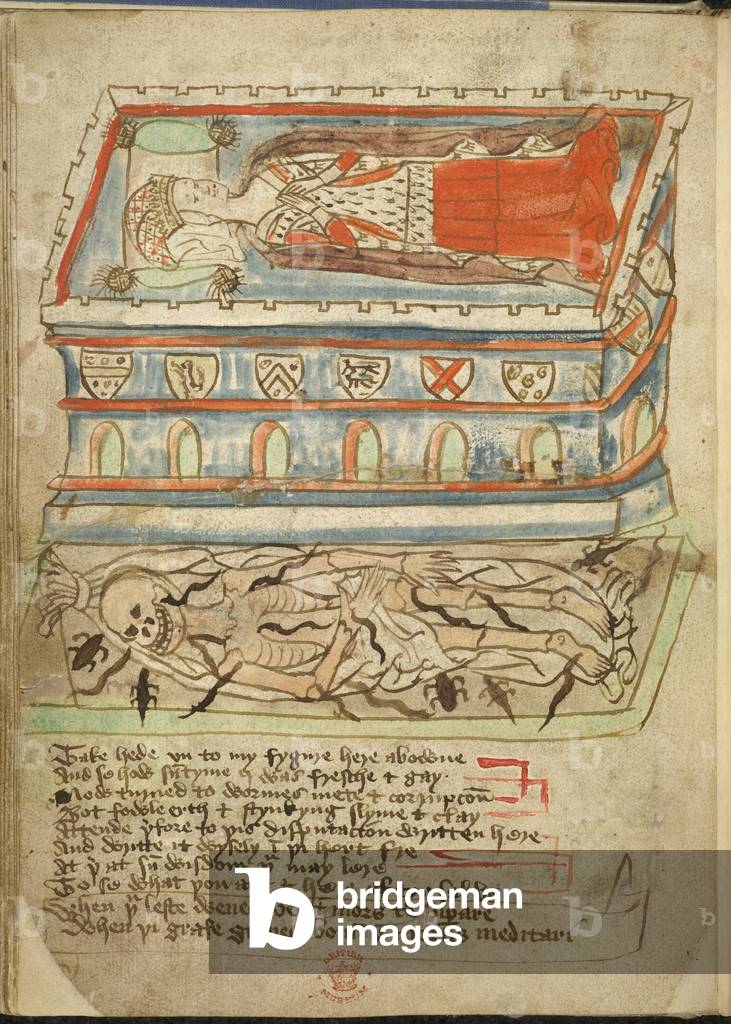 Take hede vn to my fygure here abowne
And se how sũtyme I was fresche & gay
Now turned to wormes mete & corrupcoñ
Bot fowle erth & stynkyng slyme & clay
Attende þfore to þis disputacion written here
And writte it wysely ī þi hert fre
At þ at sũ wisdom þu may lere
To se what þou a
When þu leste wenes mors te
When þi grafe meditari
bridgeman images
BRITISH MUSEUM